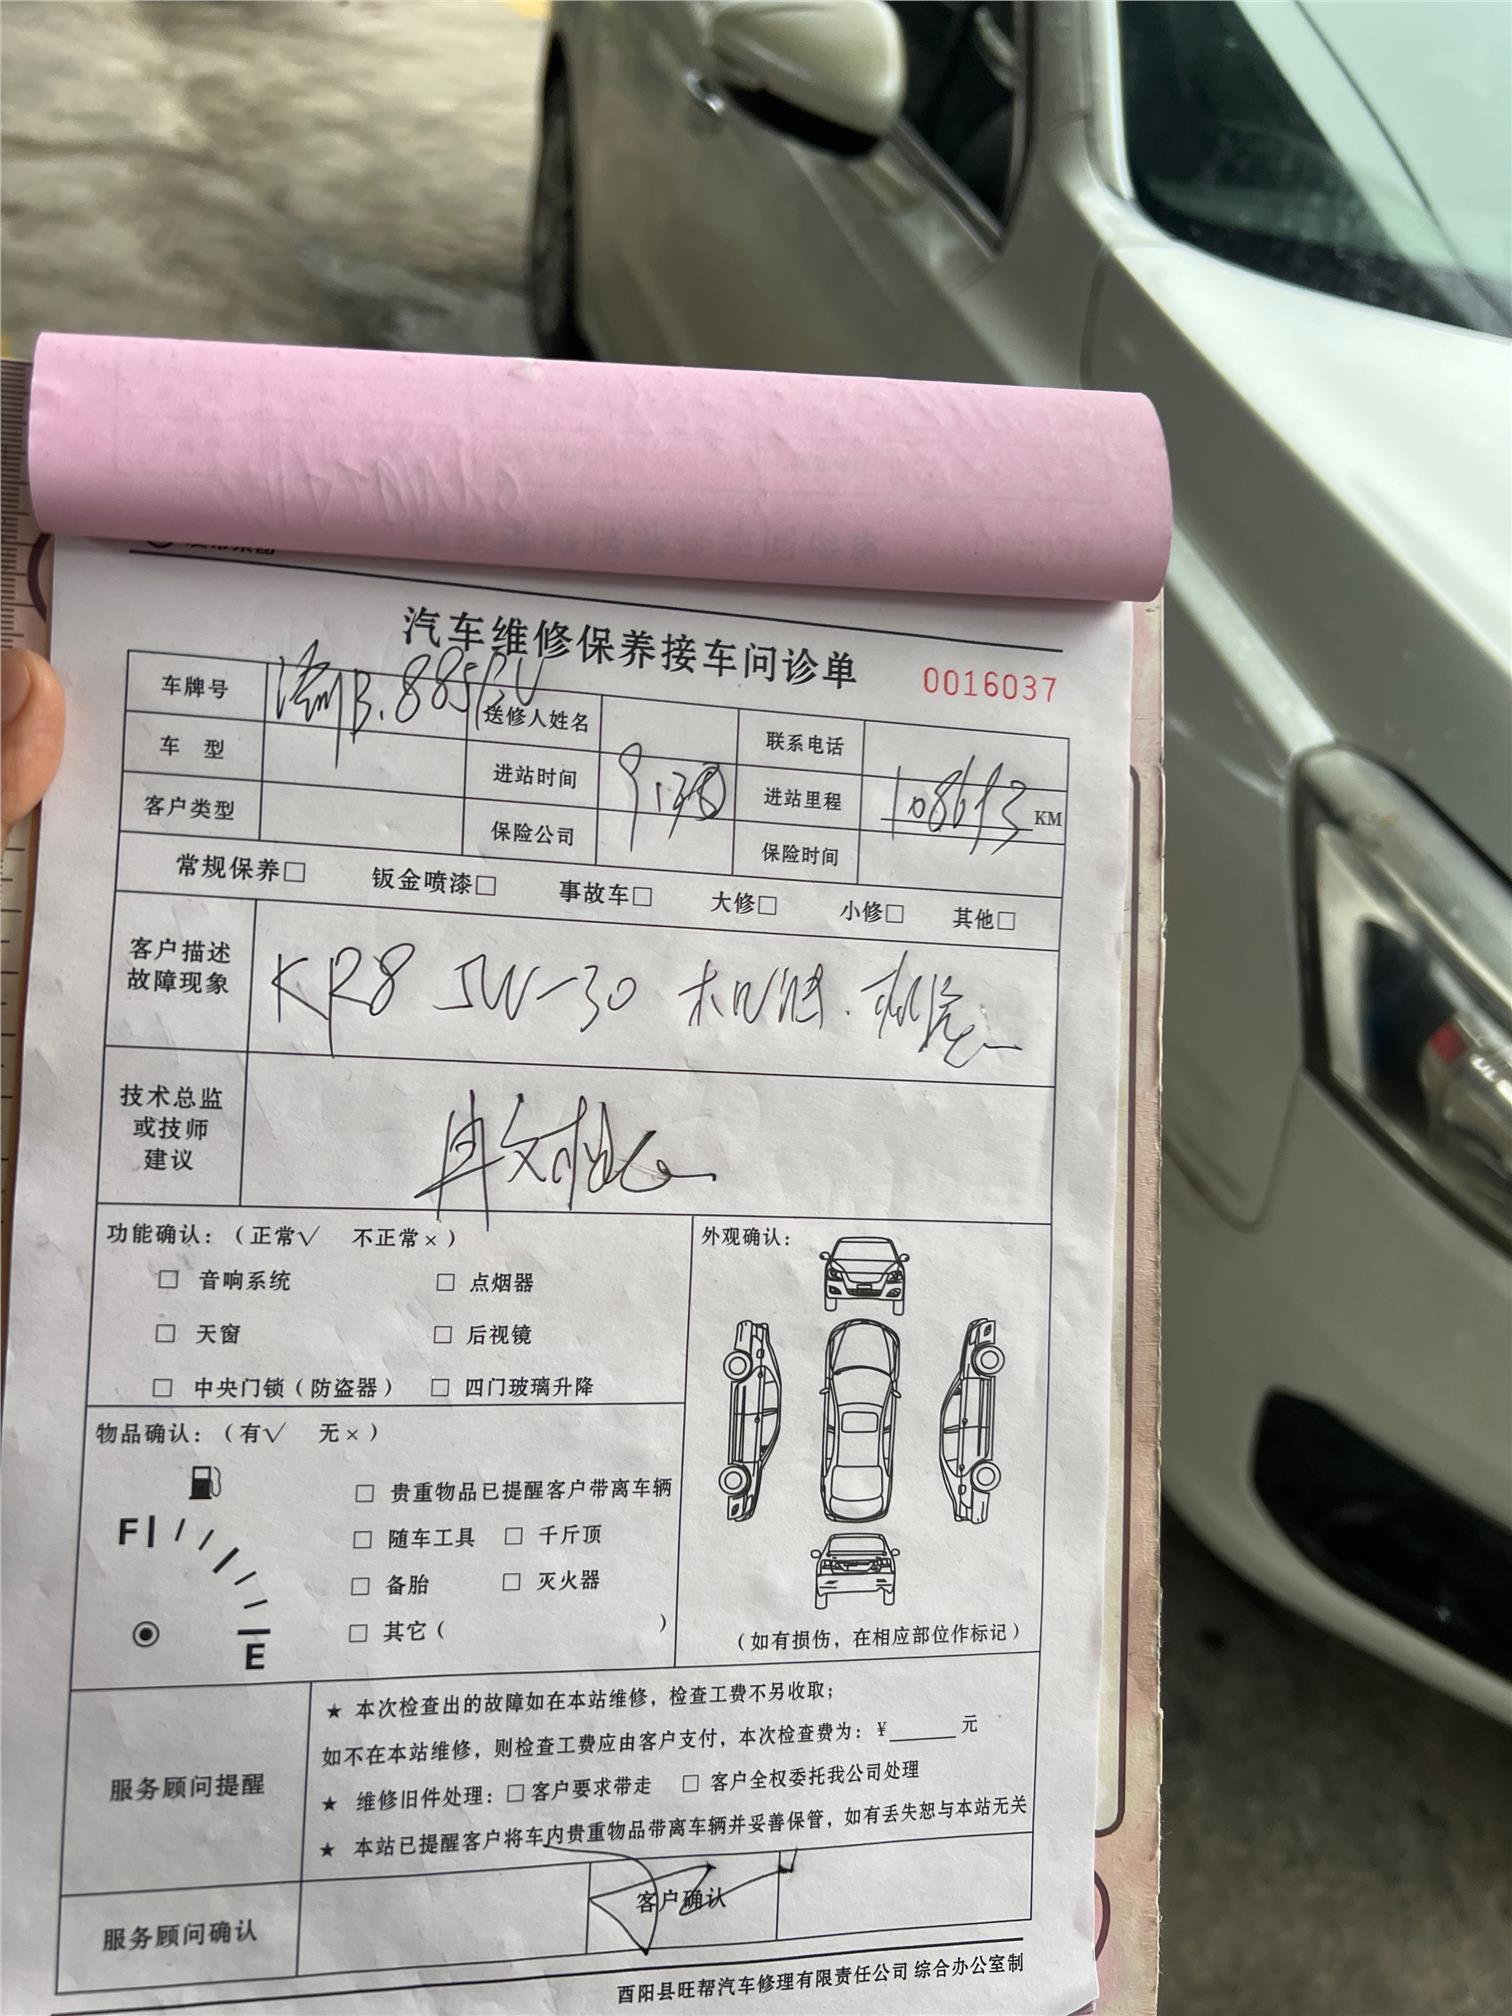 汽车维修保养接车问诊单
0016037
车牌号 渝B.885BU 送修人姓名 联系电话
车 型 进站时间 9.30 进站里程 108613 KM
客户类型 保险公司 保险时间
常规保养□ 钣金喷漆□ 事故车□ 大修□ 小修□ 其他□
客户描述
故障现象
KR8 5W-30 机油 . 机滤
技术总监
或技师
建议
功能确认：（正常√ 不正常×）
□ 音响系统 □ 点烟器
□ 天窗 □ 后视镜
□ 中央门锁（防盗器） □ 四门玻璃升降
外观确认：
（如有损伤，在相应部位作标记）
物品确认：（有√ 无×）
F
E
□ 贵重物品已提醒客户带离车辆
□ 随车工具 □ 千斤顶
□ 备胎 □ 灭火器
□ 其它（ ）
服务顾问提醒
★ 本次检查出的故障如在本站维修，检查工费不另收取；
如不在本站维修，则检查工费应由客户支付，本次检查费为：¥______元
★ 维修旧件处理：□客户要求带走 □ 客户全权委托我公司处理
★ 本站已提醒客户将车内贵重物品带离车辆并妥善保管，如有丢失恕与本站无关
服务顾问确认 客户确认
酉阳县旺帮汽车修理有限责任公司 综合办公室制